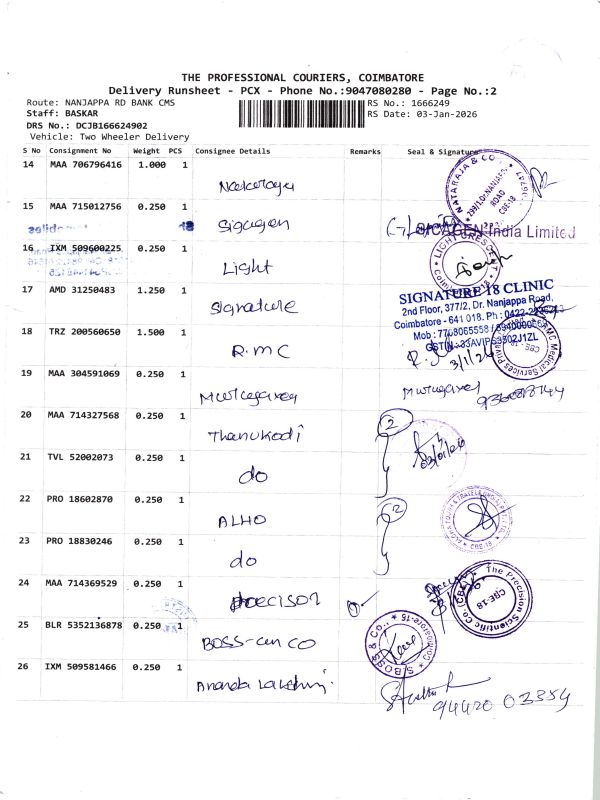 THE PROFESSIONAL COURIERS, COIMBATORE
Delivery Runsheet - PCX - Phone No.:9047080280 - Page No.:2
Route: NANJAPPA RD BANK CMS
RS No.: 1666249
Staff: BASKAR
RS Date: 03-Jan-2026
DRS No.: DCJB166624902
Vehicle: Two Wheeler Delivery
S No Consignment No Weight PCS Consignee Details Remarks Seal & Signature
14 MAA 706796416 1.000 1
NATARAJA & CO.
ROAD
CBE-18
15 MAA 715012756 0.250 1
Sigagen
India Limited
16 IXM 509600225 0.250 1
Light
LIGHT CRESCENT
17 AMD 31250483 1.250 1
Signature
SIGNATURE 18 CLINIC
2nd Floor, 377/2, Dr. Nanjappa Road,
Coimbatore - 641 018. Ph :
Mob : 7708065558
18 TRZ 200560650 1.500 1
R.M.C
3/1/26
19 MAA 304591069 0.250 1
Murugavel
Murugavel
20 MAA 714327568 0.250 1
Thanukodi
2
03/01/26
21 TVL 52002073 0.250 1
do
22 PRO 18602870 0.250 1
ALHO
2
23 PRO 18830246 0.250 1
do
24 MAA 714369529 0.250 1
Precison
The Precision Scientific Co. (CBE)
CBE-18
25 BLR 5352136878 0.250 1
BOSS-en CO
S.BOSE & CO.,
Coimbatore-15
26 IXM 509581466 0.250 1
Ananda Lakshmi
94420 03354